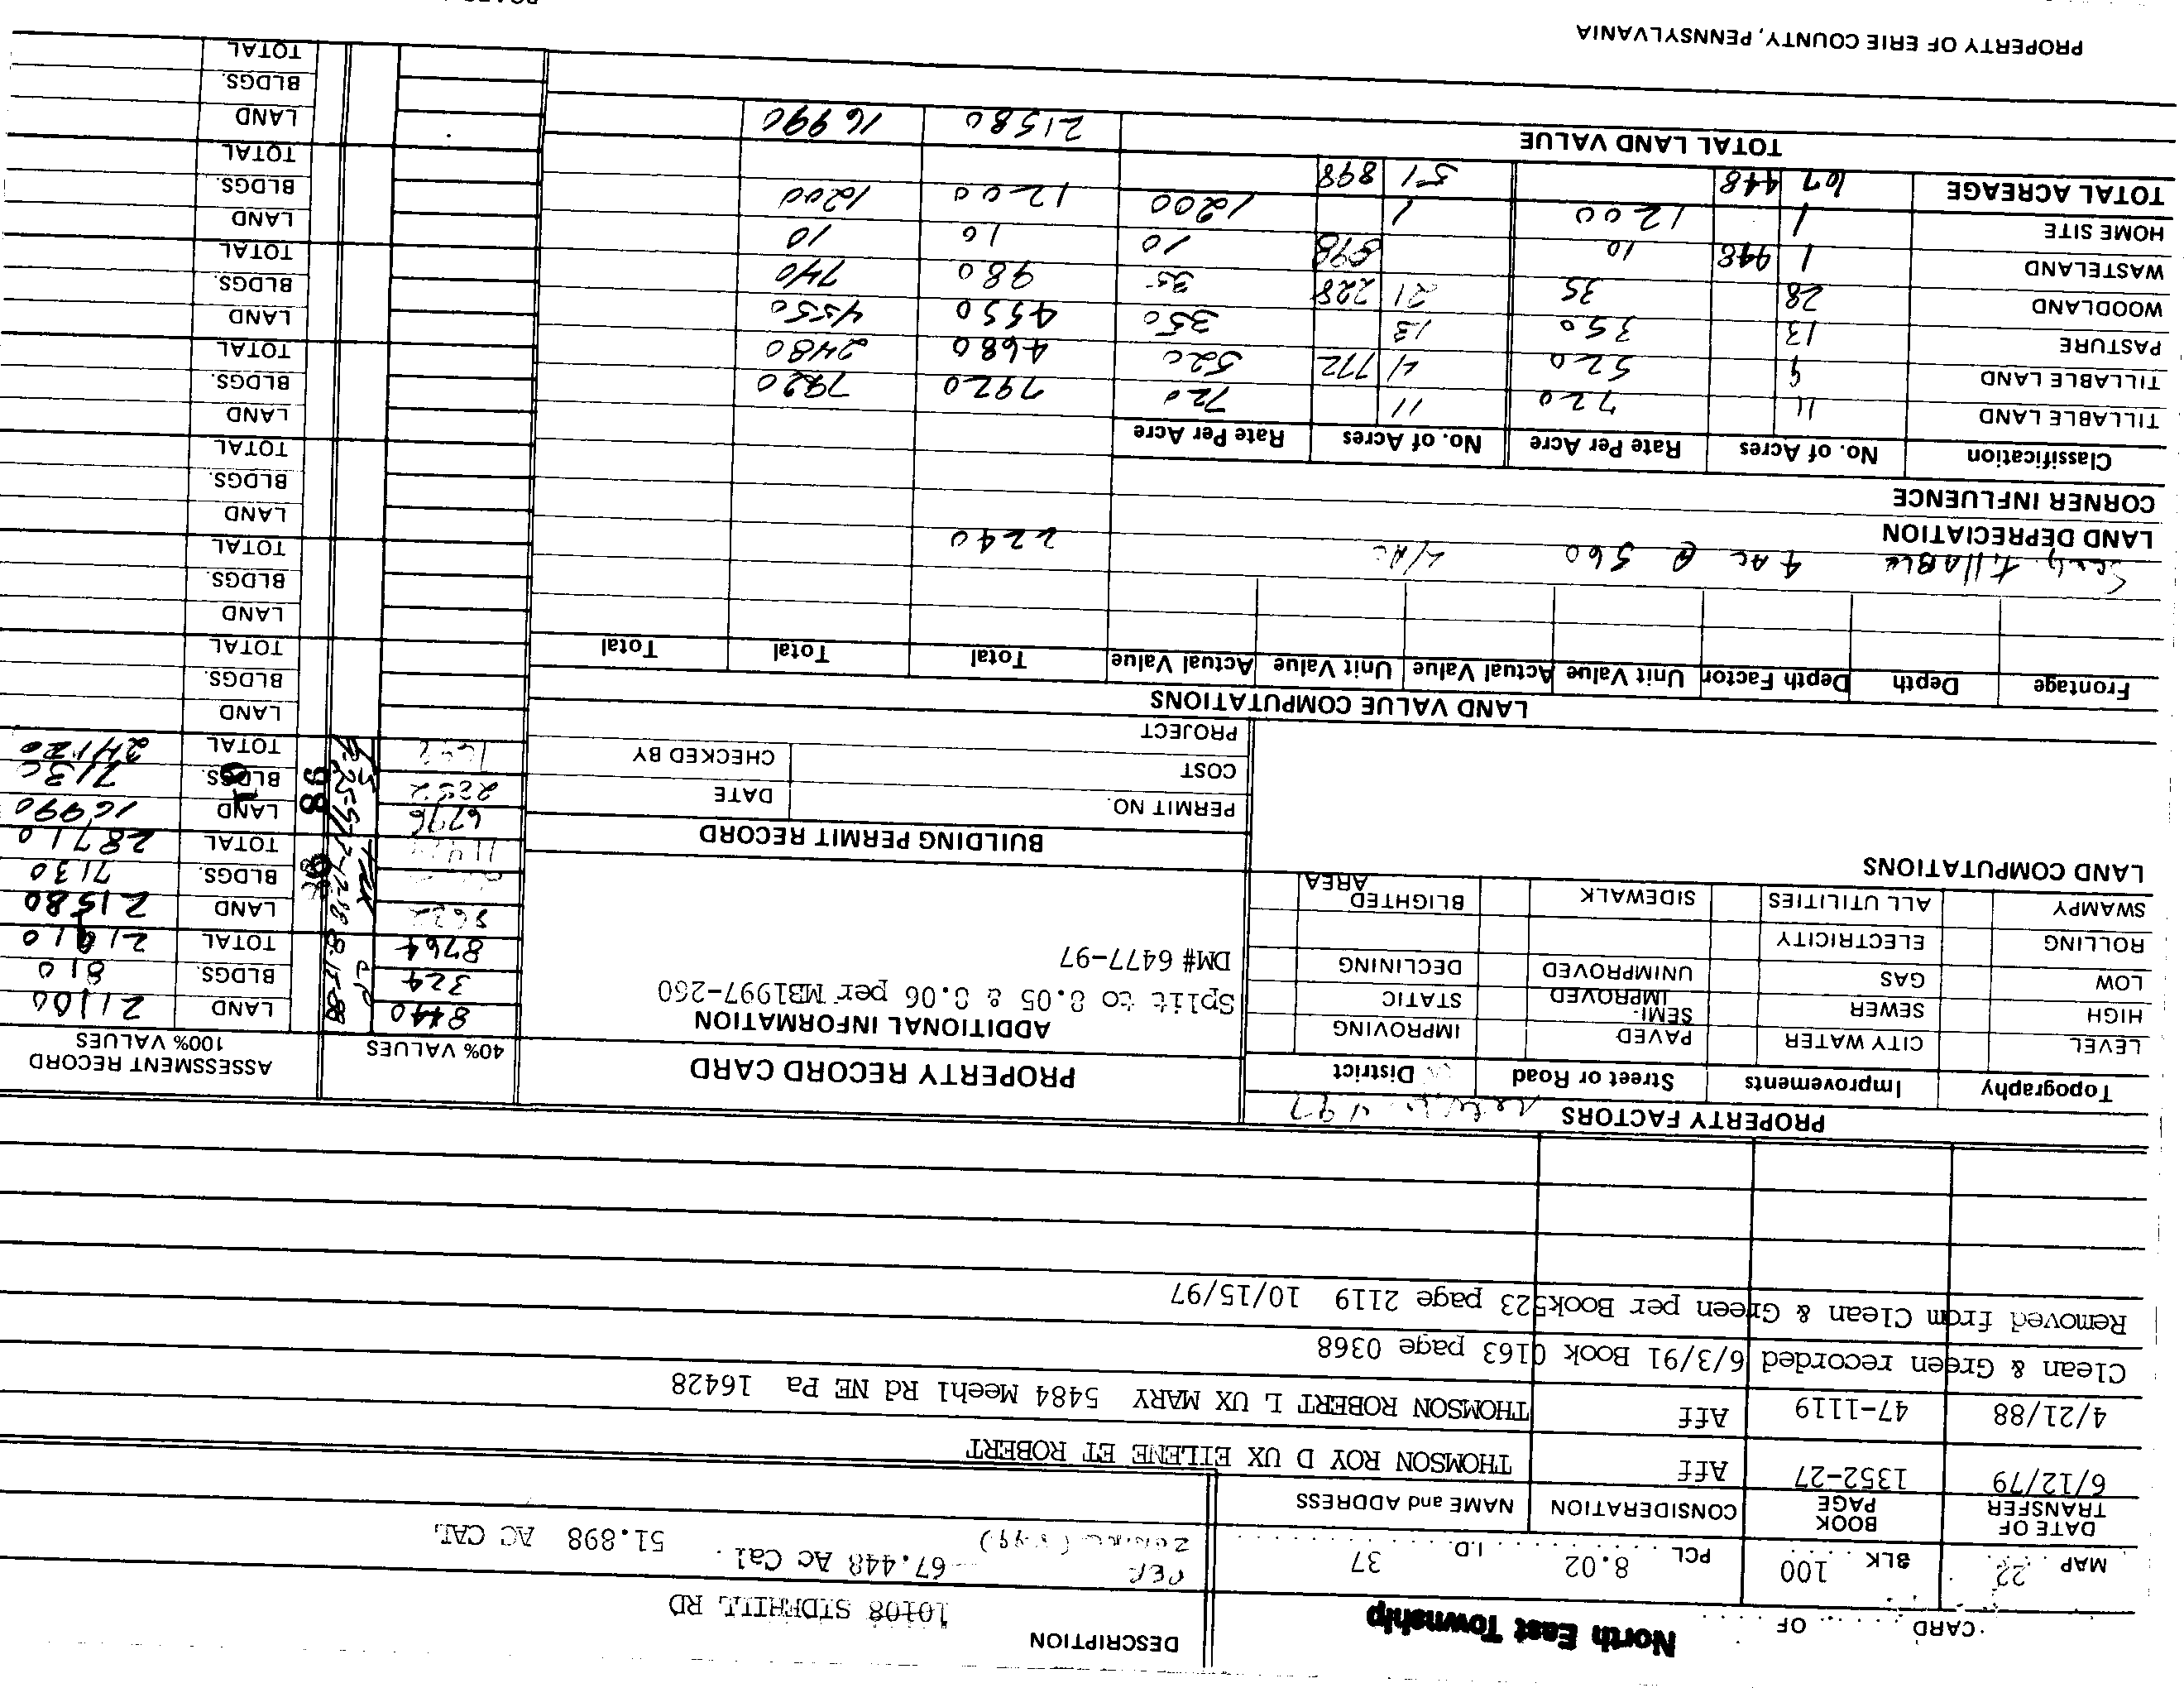 CARD OF
North East Township
MAP 22 BLK 100 PCL 8.02 I.D. 37
DESCRIPTION
10108 SIDEHILL RD
PER 67.448 Ac Cal. 51.898 AC CAL
DATE OF TRANSFER BOOK PAGE CONSIDERATION NAME and ADDRESS
6/12/79 1352-27 Aff THOMSON ROY D UX EILENE ET ROBERT
4/21/88 47-1119 Aff THOMSON ROBERT L UX MARY 5484 Meehl Rd NE Pa 16428
Clean & Green recorded 6/3/91 Book 0163 page 0368
Removed from Clean & Green per Book523 page 2119 10/15/97
PROPERTY FACTORS
Topography Improvements Street or Road District
LEVEL CITY WATER PAVED IMPROVING
HIGH SEWER SEMI-IMPROVED STATIC
LOW GAS UNIMPROVED DECLINING
ROLLING ELECTRICITY
SWAMPY ALL UTILITIES SIDEWALK BLIGHTED AREA
LAND COMPUTATIONS
PROPERTY RECORD CARD
ADDITIONAL INFORMATION
Split to 8.05 & 8.06 per MB1997-260
DM# 6477-97
BUILDING PERMIT RECORD
PERMIT NO. DATE
COST CHECKED BY
PROJECT
40% VALUES
8440
324
8764
6796
2852
ASSESSMENT RECORD
100% VALUES
LAND 21100
BLDGS. 810
TOTAL 21910
LAND 21580
BLDGS. 7130
TOTAL 28710
98
LAND 16990
BLDGS. 7130
TOTAL 24120
LAND
BLDGS.
TOTAL
LAND
BLDGS.
TOTAL
LAND
BLDGS.
TOTAL
LAND
BLDGS.
TOTAL
LAND
BLDGS.
TOTAL
LAND
BLDGS.
TOTAL
LAND
BLDGS.
TOTAL
LAND VALUE COMPUTATIONS
Frontage Depth Depth Factor Unit Value Actual Value Unit Value Actual Value Total Total Total
tillABLE 4 AC @ 560 2240
LAND DEPRECIATION
CORNER INFLUENCE
Classification No. of Acres Rate Per Acre No. of Acres Rate Per Acre
TILLABLE LAND 11 720 11 720 7920 7920
TILLABLE LAND 9 520 4 772 520 4680 2480
PASTURE 13 350 13 350 4550 4550
WOODLAND 28 35 21 228 35 980 740
WASTELAND 1 448 10 898 10 10 10
HOME SITE 1 1200 1 1200 1200 1200
TOTAL ACREAGE 67 448 51 898
TOTAL LAND VALUE 21580 16990
PROPERTY OF ERIE COUNTY, PENNSYLVANIA